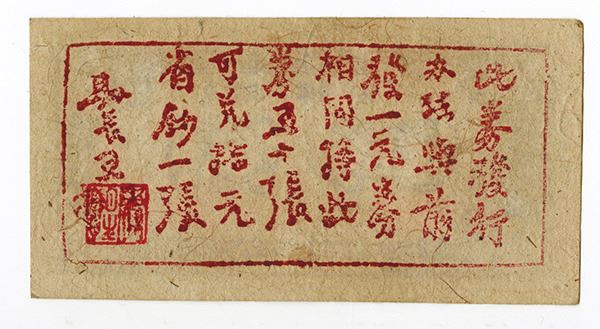 此券發行
办法與前
發一元券
相同持此
券五十張
可兑拾元
省鈔一張
县長王